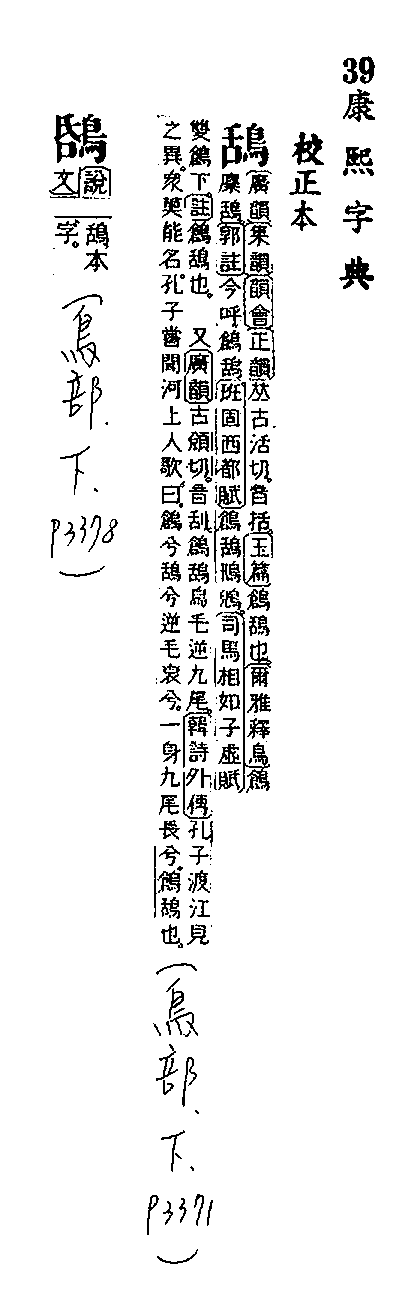 39康熙字典
校正本
鴰
廣韻集韻韻會正韻𠀤古活切。音括。玉篇鶬鴰也。爾雅釋鳥鶬
麋鴰。郭註今呼鶬鴰。班固西都賦鶬鴰鴇鶂。司馬相如子虛賦
雙鶬下。註鶬鴰也。 又廣韻古頒切。音刮。鶬鴰鳥毛逆九尾。韓詩外傳孔子渡江見
之異。衆莫能名。孔子嘗聞河上人歌曰。鶬兮鴰兮逆毛衰兮。一身九尾長兮。鶬鴰也。
(鳥部.下、P3371)
說文 鴰本字。
(鳥部.下、P3378)